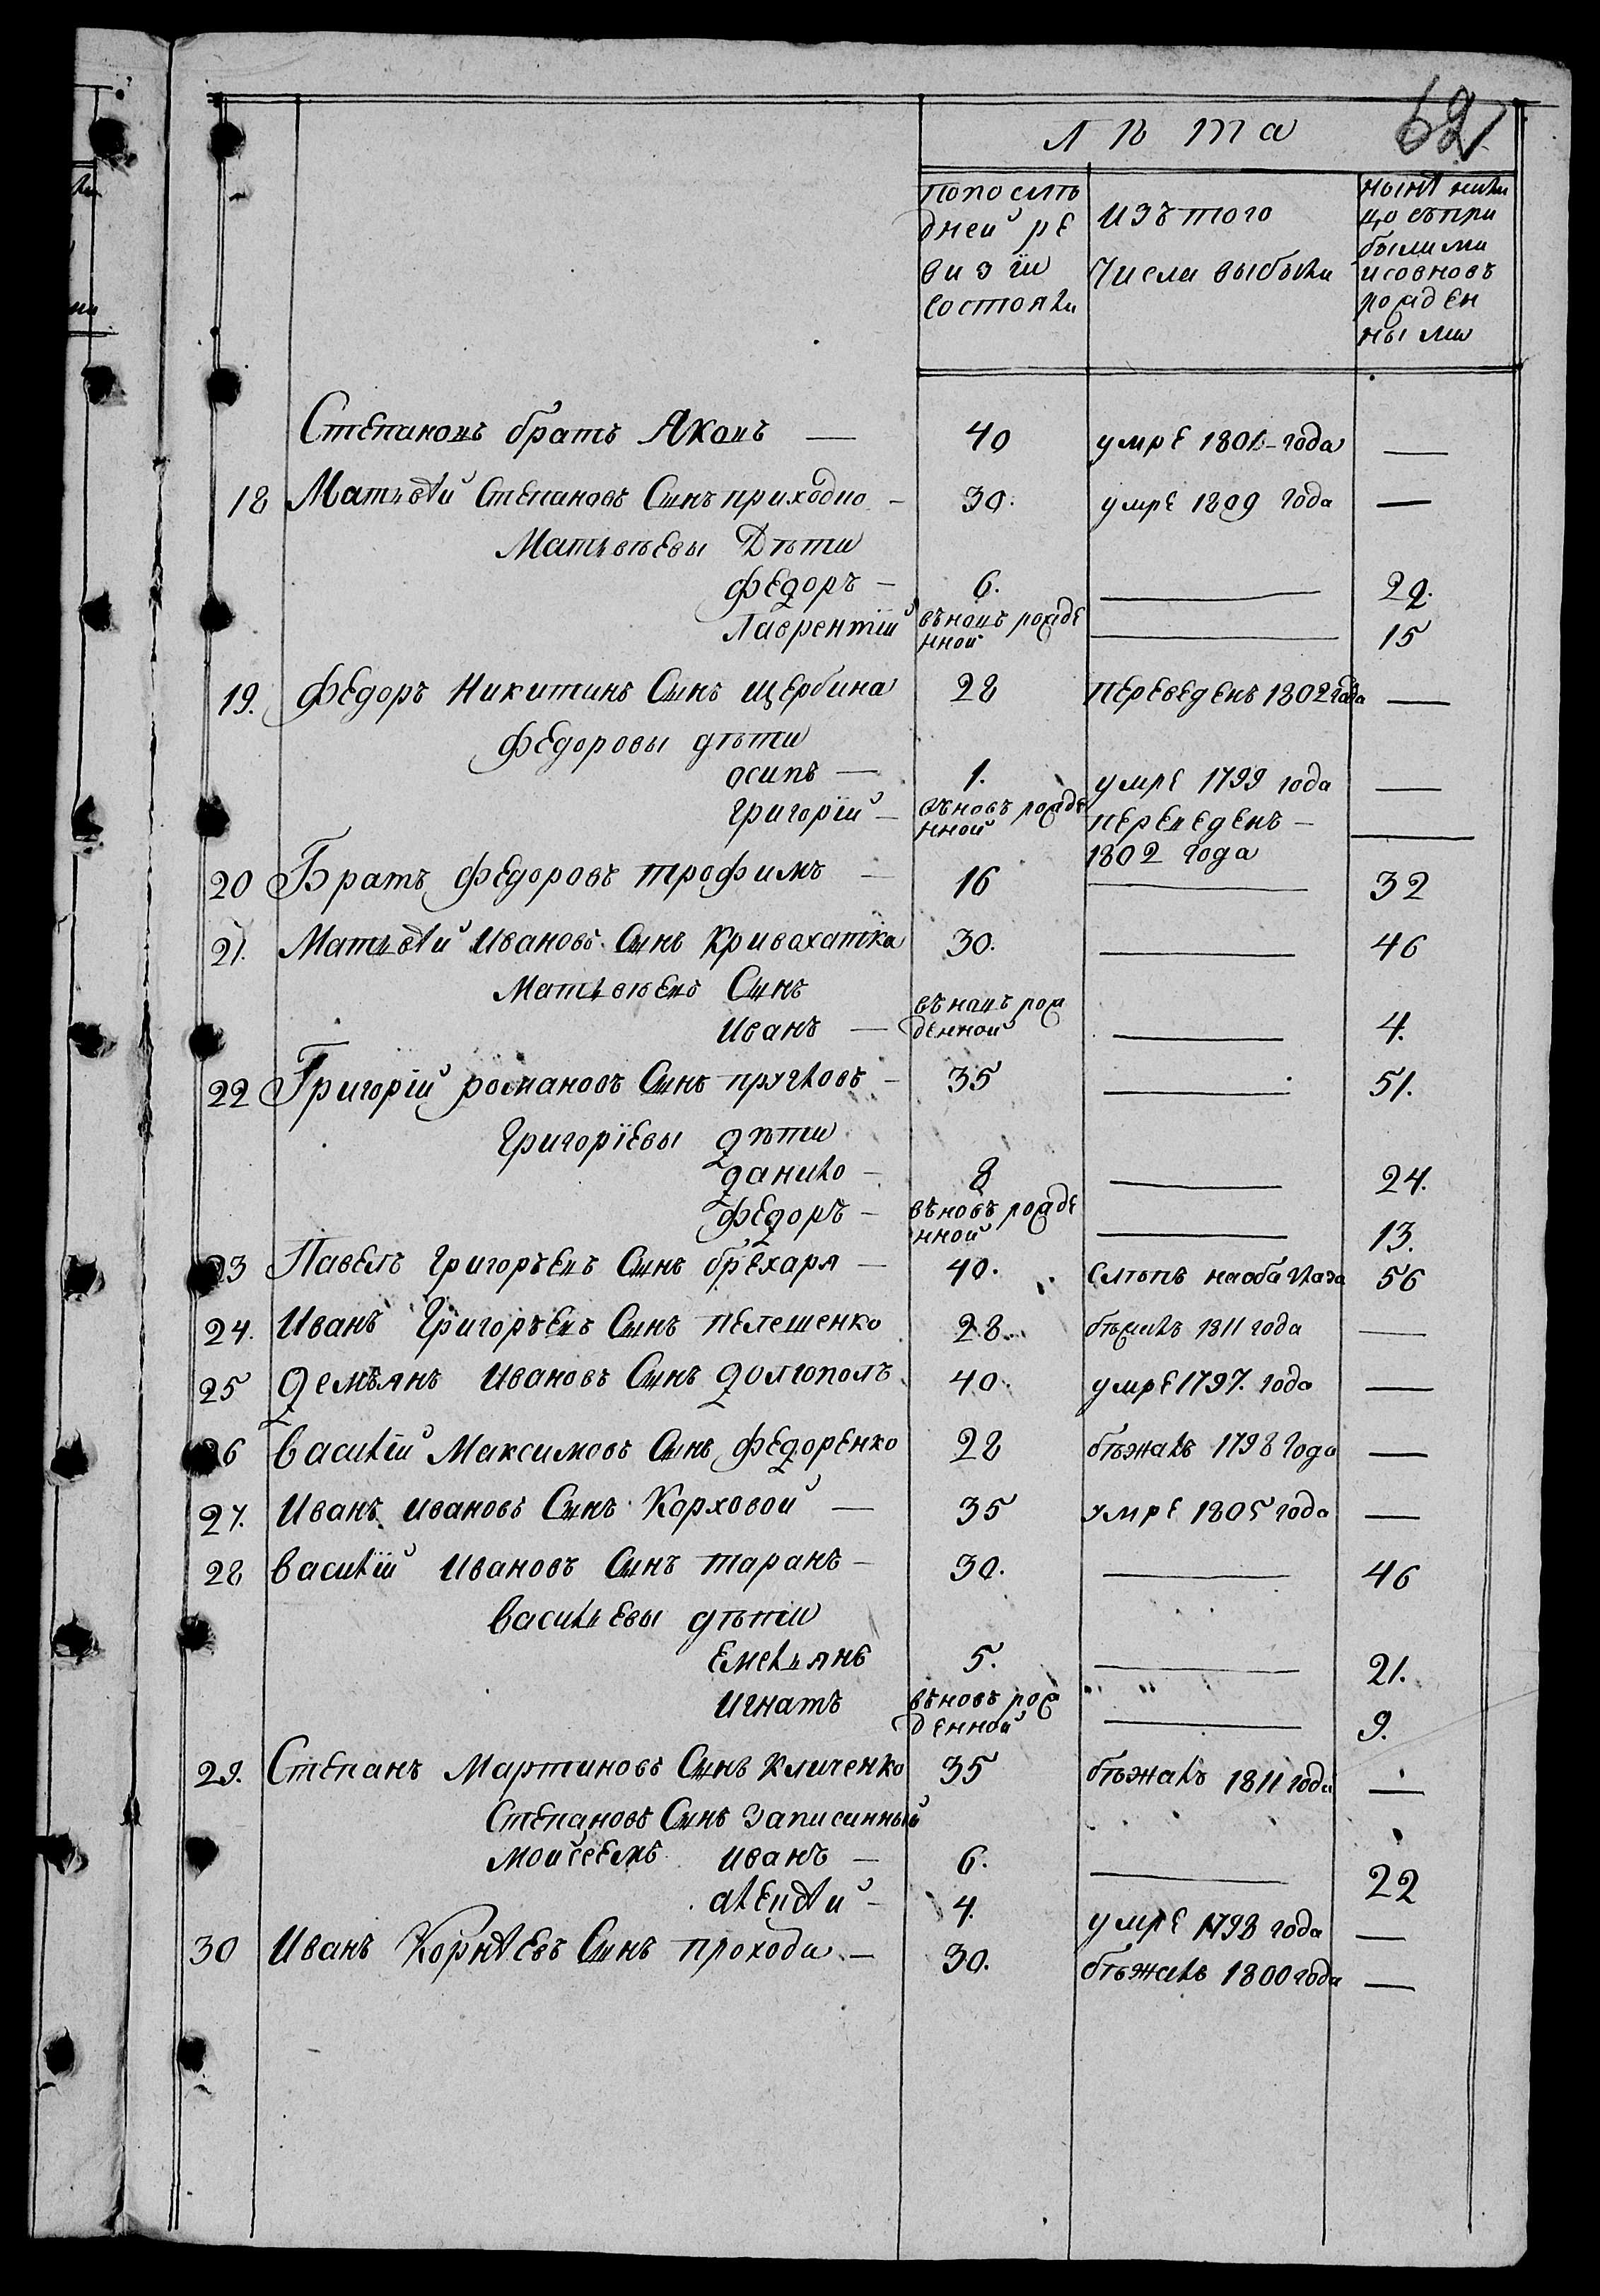 62
лѣта
попослѣ
дней ре
визïи
состояли
изътого
числа выбыли
нынѣ нали
цо съпри
былыми
исовновъ
рожден
ными
Степановъ братъ Яковъ — 40 умре 1801-года —
18 Матвѣй Степановъ Сынъ приходко — 30. умре 1809 года —
Матвѣевы Дѣти
федоръ — 6. — 22.
Лаврентïй въновъ рожде
нной — 15
19. федоръ Никитинъ Сынъ щербина 28 переведенъ 1802 года —
федоровы дѣти
осипъ — 1. умре 1799 года —
григорïй — въновъ рожде
нной переведенъ —
1802 года —
20 Братъ федоровъ трофимъ — 16 — 32
21. Матвѣй Ивановъ Сынъ Кривохатка 30. — 46
Матвѣевъ Сынъ
Иванъ — въновъ рож
денной — 4.
22 Григорïй романовъ Сынъ пругловъ — 35 — 51.
Григорïевы дѣти
данило — 8 — 24.
федоръ — въновъ рожде
нной — 13.
23 Павелъ Григоръевъ Сынъ брехаря — 40. слѣпъ наоба глаза 56
24. Иванъ Григоръевъ Сынъ пелешенко 28. бѣжалъ 1811 года —
25 Демъянъ Ивановъ Сынъ долгополъ 40. умре 1797. года —
26 василïй Максимовъ Сынъ федоренко 28 бѣжалъ 1798 года —
27. Иванъ ивановъ Сынъ Корховой — 35 умре 1805 года —
28 василïй Ивановъ Сынъ таранъ — 30. — 46
васильевы дѣти
емельянъ 5. — 21.
игнатъ въновъ рож
денной — 9.
29. Степанъ Мартиновъ Сынъ кличенко 35 бѣжалъ 1811 года —
Степановъ Сынъ записанный
мойсеемъ иванъ — 6. — 22
алексѣй — 4. умре 1798 года —
30 Иванъ Корнѣевъ Сынъ прохода — 30. бѣжалъ 1800 года —